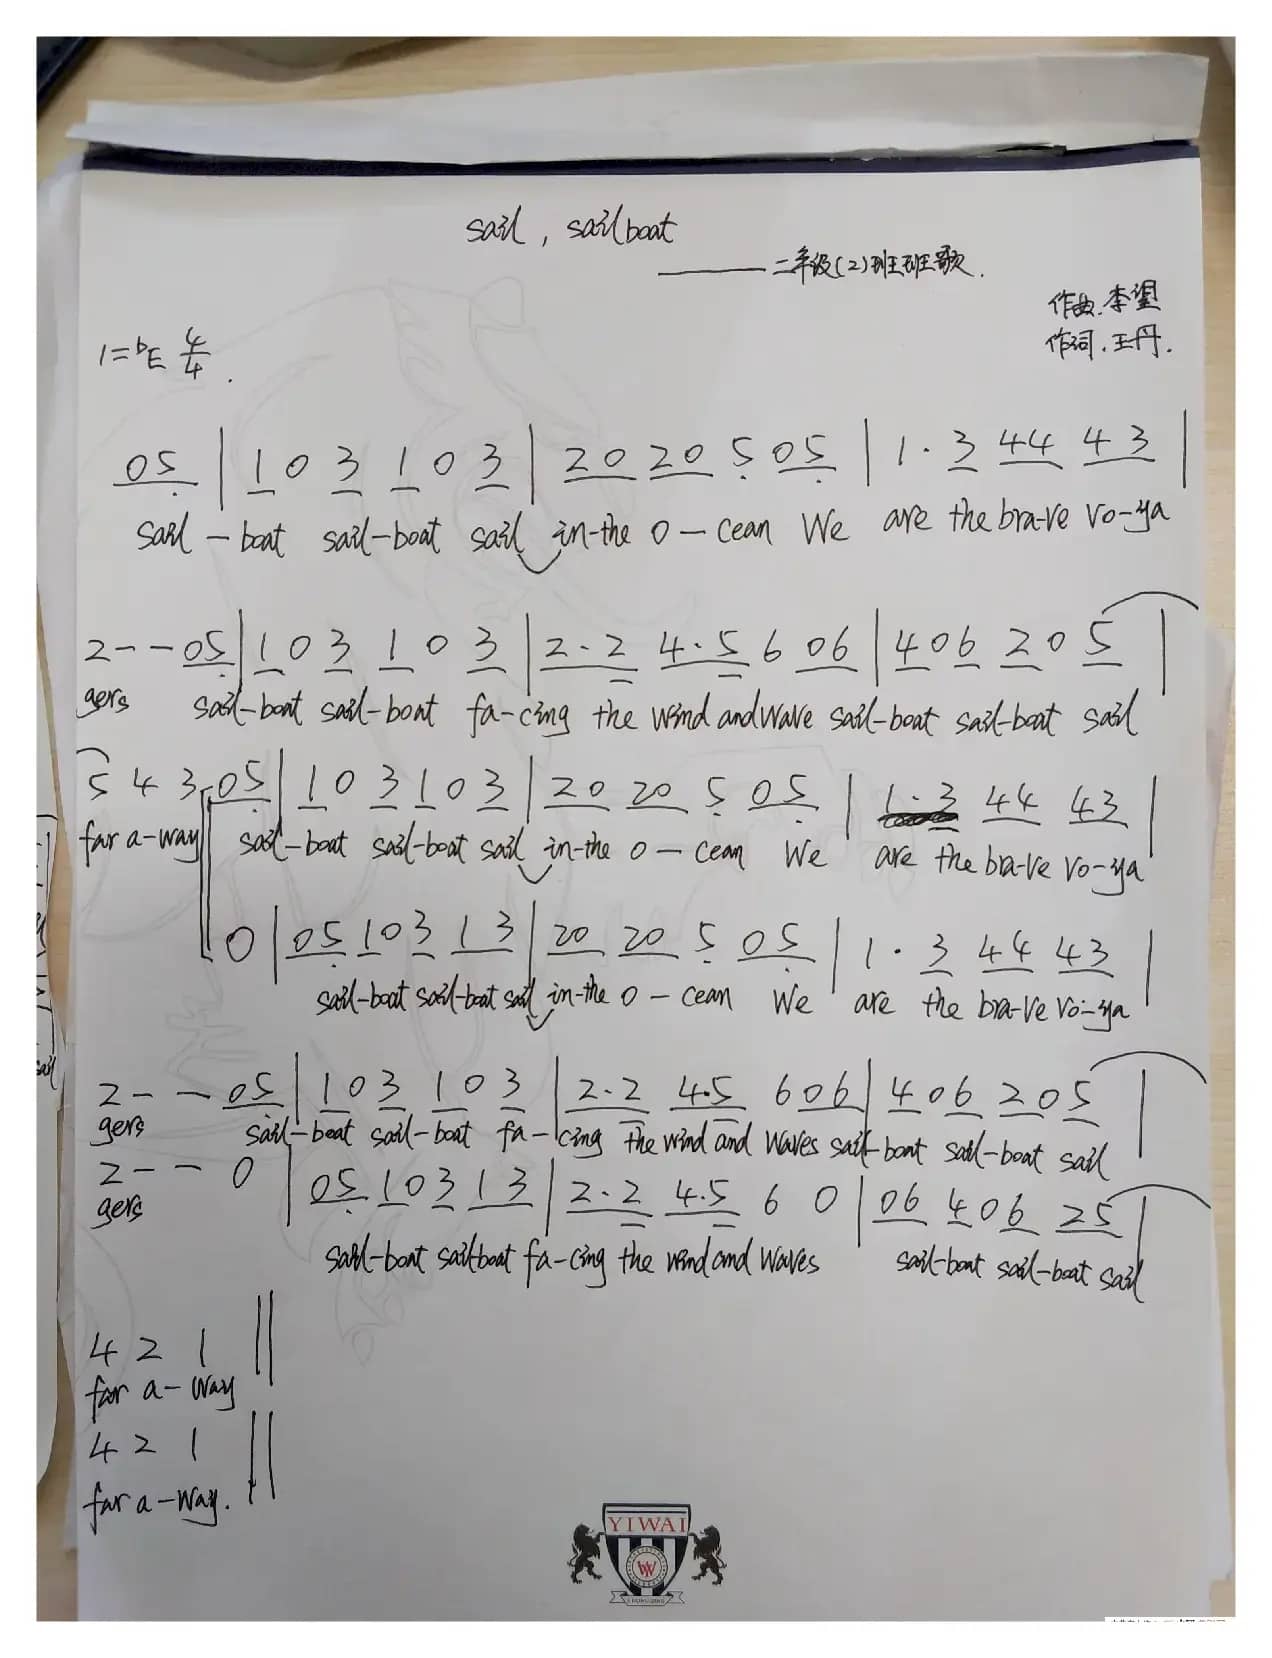 sail, sailboat
——— 二年级(2)班班歌.
作曲.李望
作词.王丹.
1=bE 4/4.
05 | 1 0 3 1 0 3 | 20 20 5 05 | 1. 3 44 43 |
sail-boat sail-boat sail in-the o-cean We are the bra-ve vo-ya
2 - - 05 | 1 0 3 1 0 3 | 2.2 4.5 6 06 | 406 205 |
gers sail-boat sail-boat fa-cing the wind and wave sail-boat sail-boat sail
5 4 3 05 | 1 0 3 1 0 3 | 20 20 5 05 | 1.3 44 43 |
far a-way sail-boat sail-boat sail in-the o-cean We are the bra-ve vo-ya
0 | 05 103 13 | 20 20 5 05 | 1. 3 44 43 |
sail-boat sail-boat sail in-the o-cean We are the bra-ve vo-ya
2 - - 05 | 1 0 3 1 0 3 | 2.2 4.5 6 06 | 406 205 |
gers sail-boat sail-boat fa-cing the wind and waves sail-boat sail-boat sail
2 - - 0 | 05 103 13 | 2.2 4.5 6 0 | 06 406 25 |
gers sail-boat sailboat fa-cing the wind and waves sail-boat sail-boat sail
4 2 1 ||
far a-way
4 2 1 ||
far a-way.
YIWAI